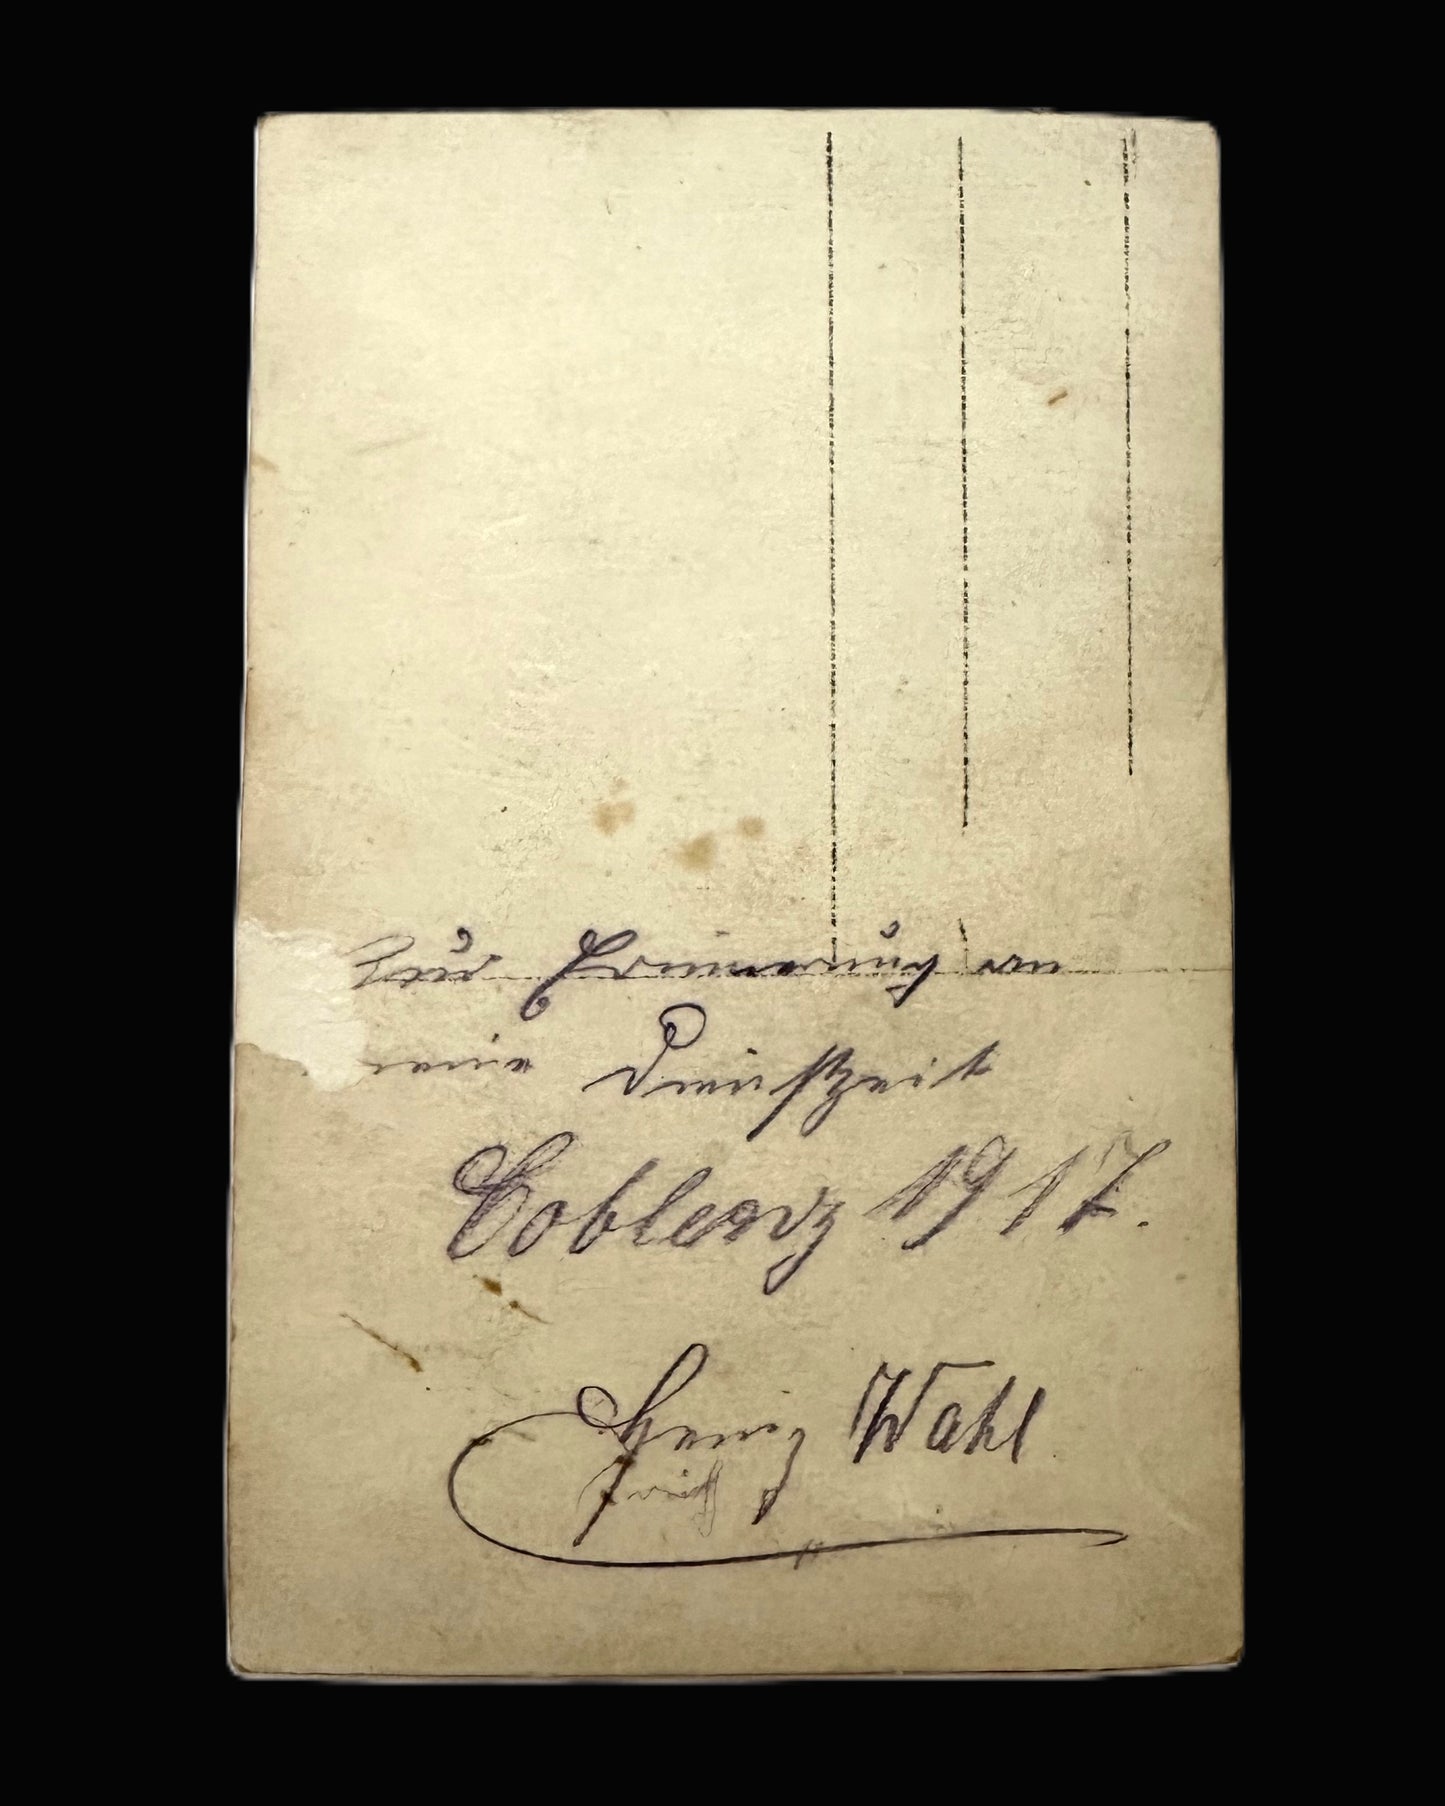 Zur Erinnerung an
meine Dienstzeit
Coblenz 1917.
Wahl